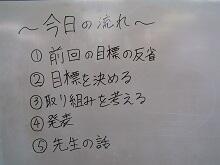 ～今日の流れ～
①前回の目標の反省
②目標を決める
③取り組みを考える
④発表
⑤先生の話